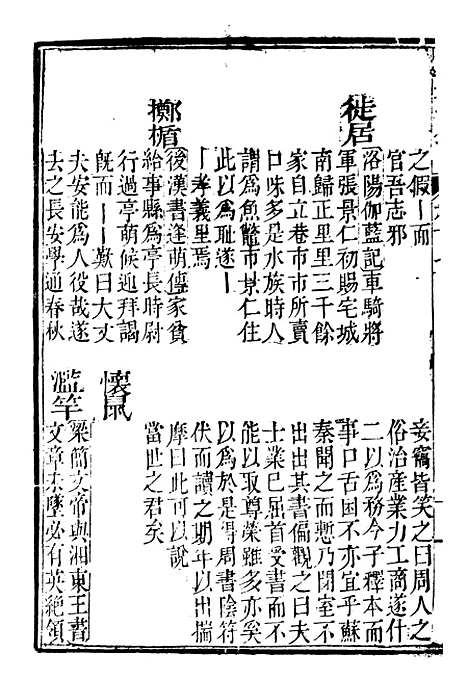 之假丨而
官吾志邪
徙居
洛陽伽藍記車騎將
軍張景仁初賜宅城
南歸正里里三千餘
家自立巷市市所賣
口味多是水族時人
謂為魚鱉市景仁住
此以為耻遂丨
丨孝義里焉
擲楯
後漢書逢萌傳家貧
給事縣為亭長時尉
行過亭萌候迎拜謁
旣而丨丨歎曰大丈
夫安能為人役哉遂
去之長安學通春秋
妾竊皆笑之曰周人之
俗治産業力工商遂什
二以為務今子釋本而
事口舌困不亦宜乎蘇
秦聞之而慙乃閉室不
出出其書偏觀之曰夫
士業已屈首受書而不
能以取尊榮雖多亦奚
以為於是得周書陰符
伏而讀之期年以出揣
摩曰此可以說
當世之君矣
懷鼠
濫竽
梁簡文帝與湘東王書
文章未墜必有英絶領